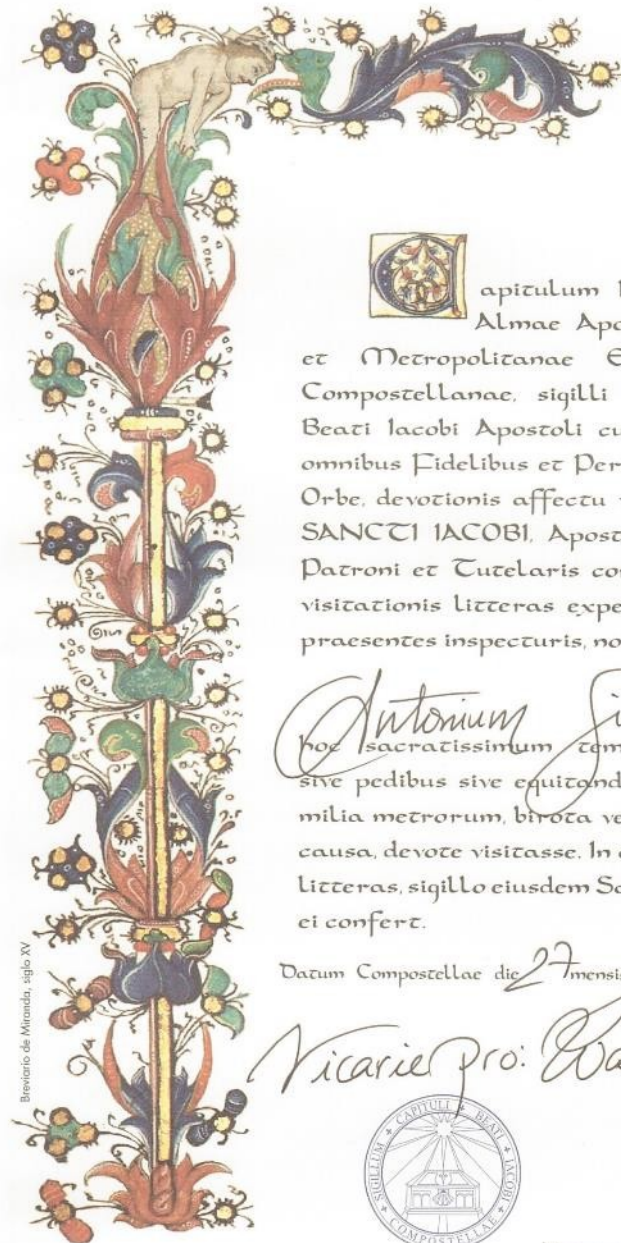 Capitulum
Almae Apo
et Metropolitanae E
Compostellanae, sigilli
Beati Iacobi Apostoli cu
omnibus Fidelibus et Per
Orbe, devotionis affectu
SANCTI IACOBI, Apost
Patroni et Tutelaris co
visitationis litteras expe
praesentes inspecturis, no
Antonium Si
hoc sacratissimum tem
sive pedibus sive equitand
milia metrorum, birota ve
causa, devote visitasse. In
litteras, sigillo eiusdem Sa
ei confert.
Datum Compostellae die 27 mensis
Vicarie Pro:
SIGILLUM CAPITULI BEATI IACOBI COMPOSTELLAE
Breviario de Miranda, siglo XV